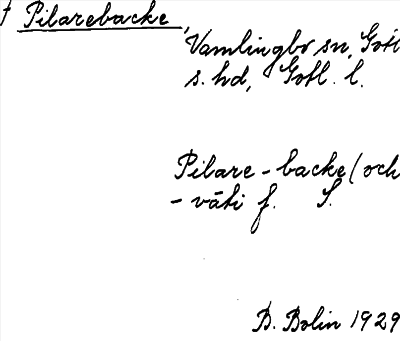 † Pilarebacke,
Vamlingbo sn, Gotl
s. hd, Gotl. l.
Pilare-backe (och
-väti f. S.
B. Bolin 1929